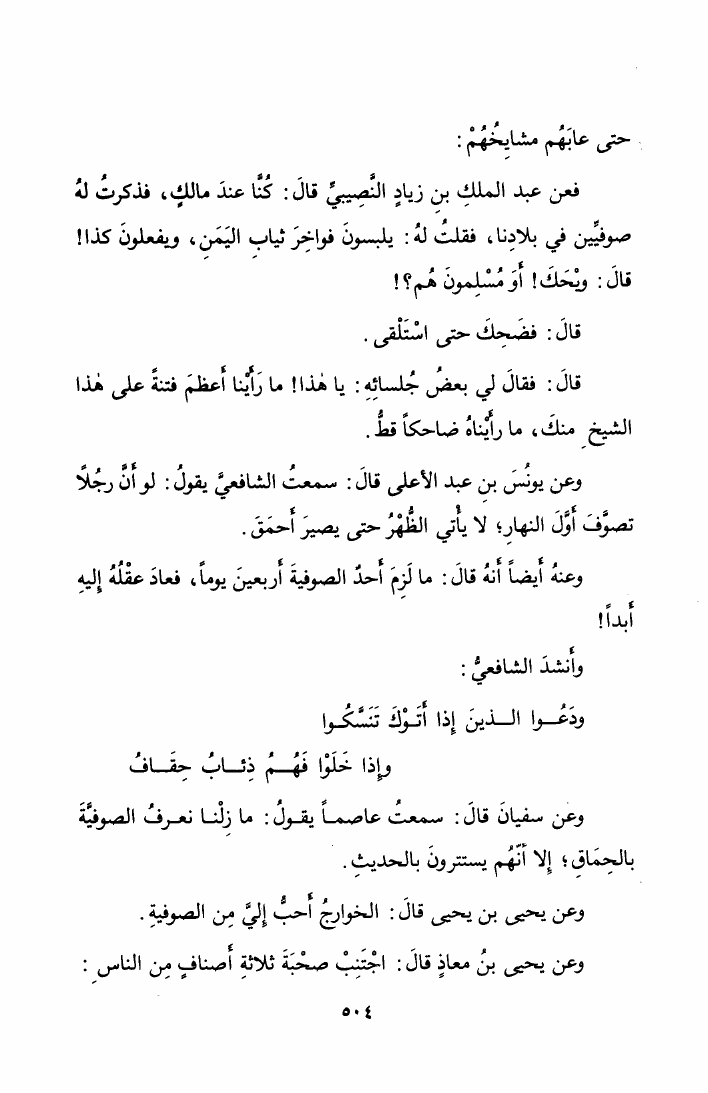 حتى عابَهُم مشايخُهُمْ :
فعن عبد الملكِ بنِ زيادٍ النَّصِيبيِّ قالَ : كُنَّا عندَ مالكٍ ، فذكرتُ لهُ
صوفيِّينَ في بلادِنا ، فقلتُ لهُ : يلبسونَ فواخِرَ ثيابِ اليَمَنِ ، ويفعلونَ كذا !
قالَ : ويْحَكَ ! أَوَ مُسْلِمونَ هُم ؟ !
قالَ : فضَحِكَ حتى اسْتَلْقى .
قالَ : فقالَ لي بعضُ جُلسائِهِ : يا هٰذا ! ما رَأَيْنا أَعظمَ فتنةً على هٰذا
الشيخِ منكَ ، ما رأَيْناهُ ضاحكاً قطُّ .
وعن يونُسَ بنِ عبد الأعلى قالَ : سمعتُ الشافعيَّ يقولُ : لو أَنَّ رجُلًا
تصوَّفَ أَوَّلَ النهارِ ؛ لا يأْتي الظُّهْرُ حتى يصيرَ أَحمَقَ .
وعنهُ أَيضاً أَنهُ قالَ : ما لَزِمَ أَحدٌ الصوفيةَ أَربعينَ يوماً ، فعادَ عقْلُهُ إِليهِ
أَبداً !
وأَنشدَ الشافعيُّ :
ودَعُــوا الــذينَ إِذا أَتَــوْكَ تَنَسَّكُــوا
وإِذا خَلَوْا فَهُــمُ ذِئــابُ حِقَــافُ
وعن سفيانَ قالَ : سمعتُ عاصمــاً يقــولُ : ما زِلْنــا نعــرفُ الصوفيَّةَ
بالحِمَاقِ ؛ إِلا أَنَّهُم يستترونَ بالحديثِ .
وعن يحيى بن يحيى قالَ : الخوارجُ أَحبُّ إِليَّ مِن الصوفيةِ .
وعن يحيى بنُ معاذٍ قالَ : اجْتَنِبْ صحْبَةَ ثلاثةِ أَصنافٍ مِن الناسِ :
٥٠٤